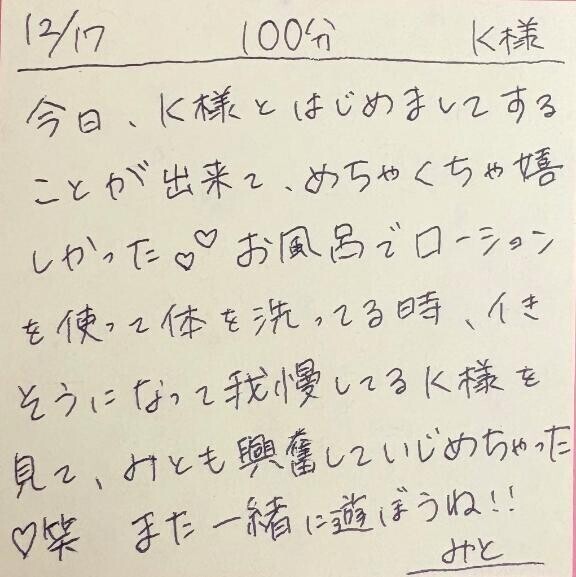 12/17 100分 K様
今日、K様とはじめましてする
ことが出来て、めちゃくちゃ嬉
しかった♡♡ お風呂でローション
を使って体を洗ってる時、イき
そうになって我慢してるK様を
見て、みとも興奮していじめちゃった
♡笑 また一緒に遊ぼうね!!
みと